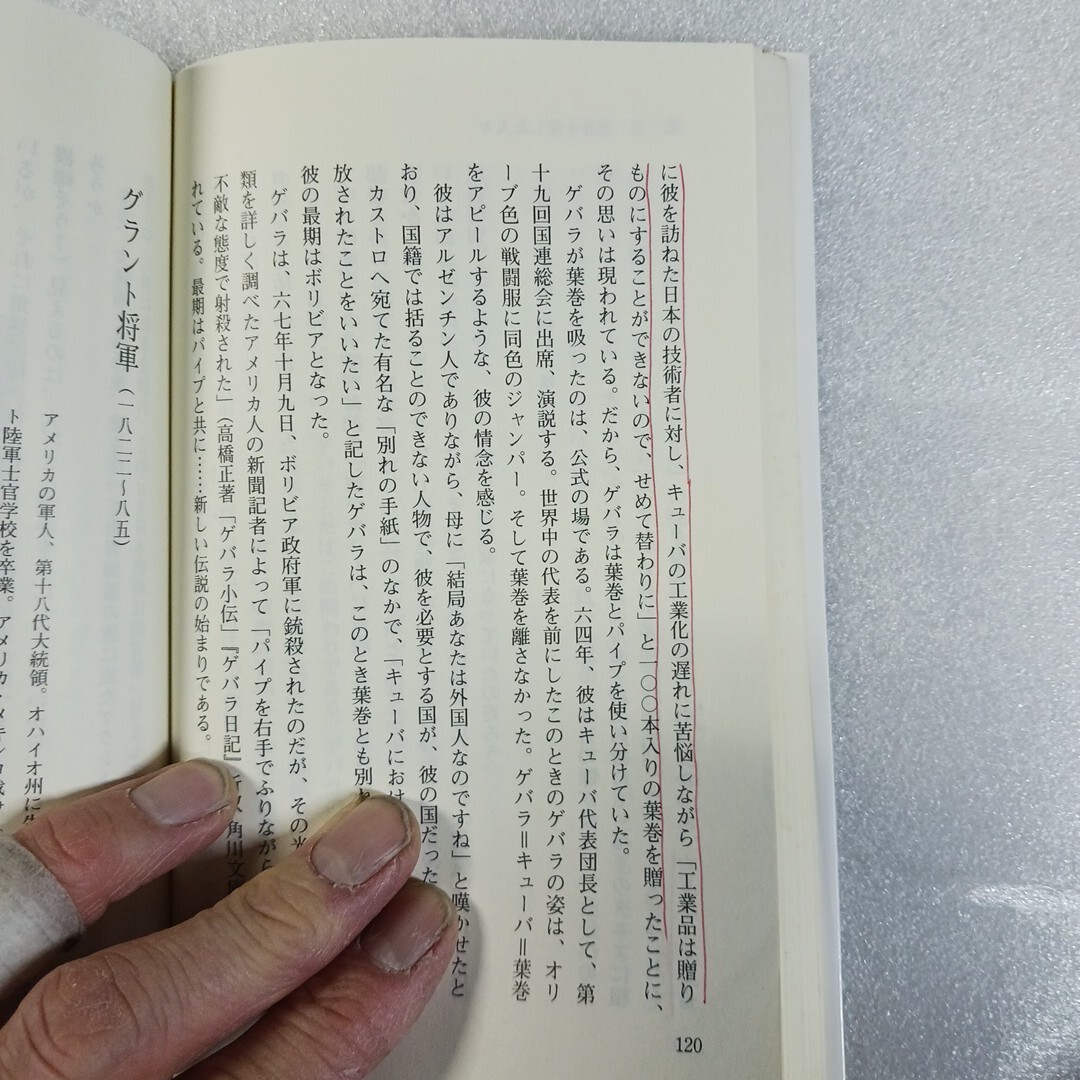 に彼を訪ねた日本の技術者に対し、キューバの工業化の遅れに苦悩しながら「工業品は贈り
ものにすることができないので、せめて替わりに」と一〇〇本入りの葉巻を贈ったことに、
その思いは現われている。だから、ゲバラは葉巻とパイプを使い分けていた。
ゲバラが葉巻を吸ったのは、公式の場である。六四年、彼はキューバ代表団長として、第
十九回国連総会に出席、演説する。世界中の代表を前にしたこのときのゲバラの姿は、オリ
ーブ色の戦闘服に同色のジャンパー。そして葉巻を離さなかった。ゲバラ＝キューバ＝葉巻
をアピールするような、彼の情念を感じる。
彼はアルゼンチン人でありながら、母に「結局あなたは外国人なのですね」と嘆かせたと
おり、国籍では括ることのできない人物で、彼を必要とする国が、彼の国だった
カストロへ宛てた有名な「別れの手紙」のなかで、「キューバにおけ
放されたことをいいたい」と記したゲバラは、このとき葉巻とも別れ
彼の最期はボリビアとなった。
ゲバラは、六七年十月九日、ボリビア政府軍に銃殺されたのだが、その
類を詳しく調べたアメリカ人の新聞記者によって「パイプを右手でふりながら
不敵な態度で射殺された」（高橋正著「ゲバラ小伝」『ゲバラ日記』所収、角川文庫
れている。最期はパイプと共に……新しい伝説の始まりである。
120
グラント将軍（一八二二〜八五）
アメリカの軍人、第十八代大統領。オハイオ州に生
ト陸軍士官学校を卒業。アメリカ・メキシコ戦